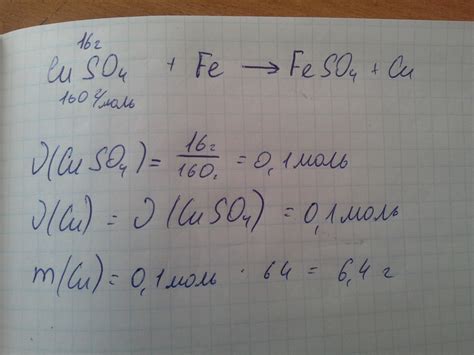 16г
CuSO₄ + Fe → FeSO₄ + Cu
160 г/моль
ν(CuSO₄) = 16г/160г = 0,1 моль
ν(Cu) = ν(CuSO₄) = 0,1 моль
m(Cu) = 0,1 моль · 64 = 6,4 г